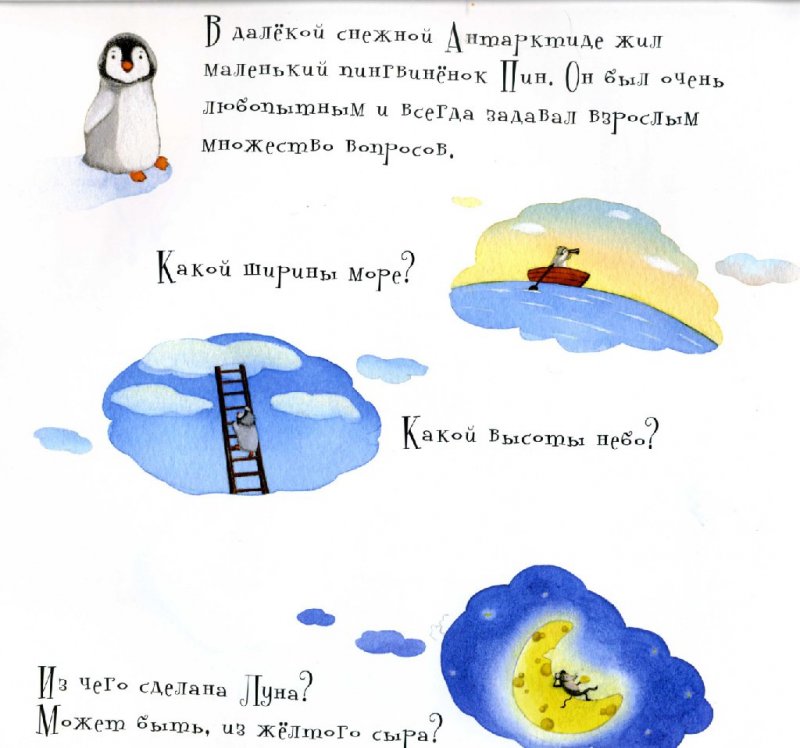 В далёкой снежной Антарктиде жил
маленький пингвинёнок Пин. Он был очень
любопытным и всегда задавал взрослым
множество вопросов.
Какой ширины море?
Какой высоты небо?
Из чего сделана Луна?
Может быть, из жёлтого сыра?